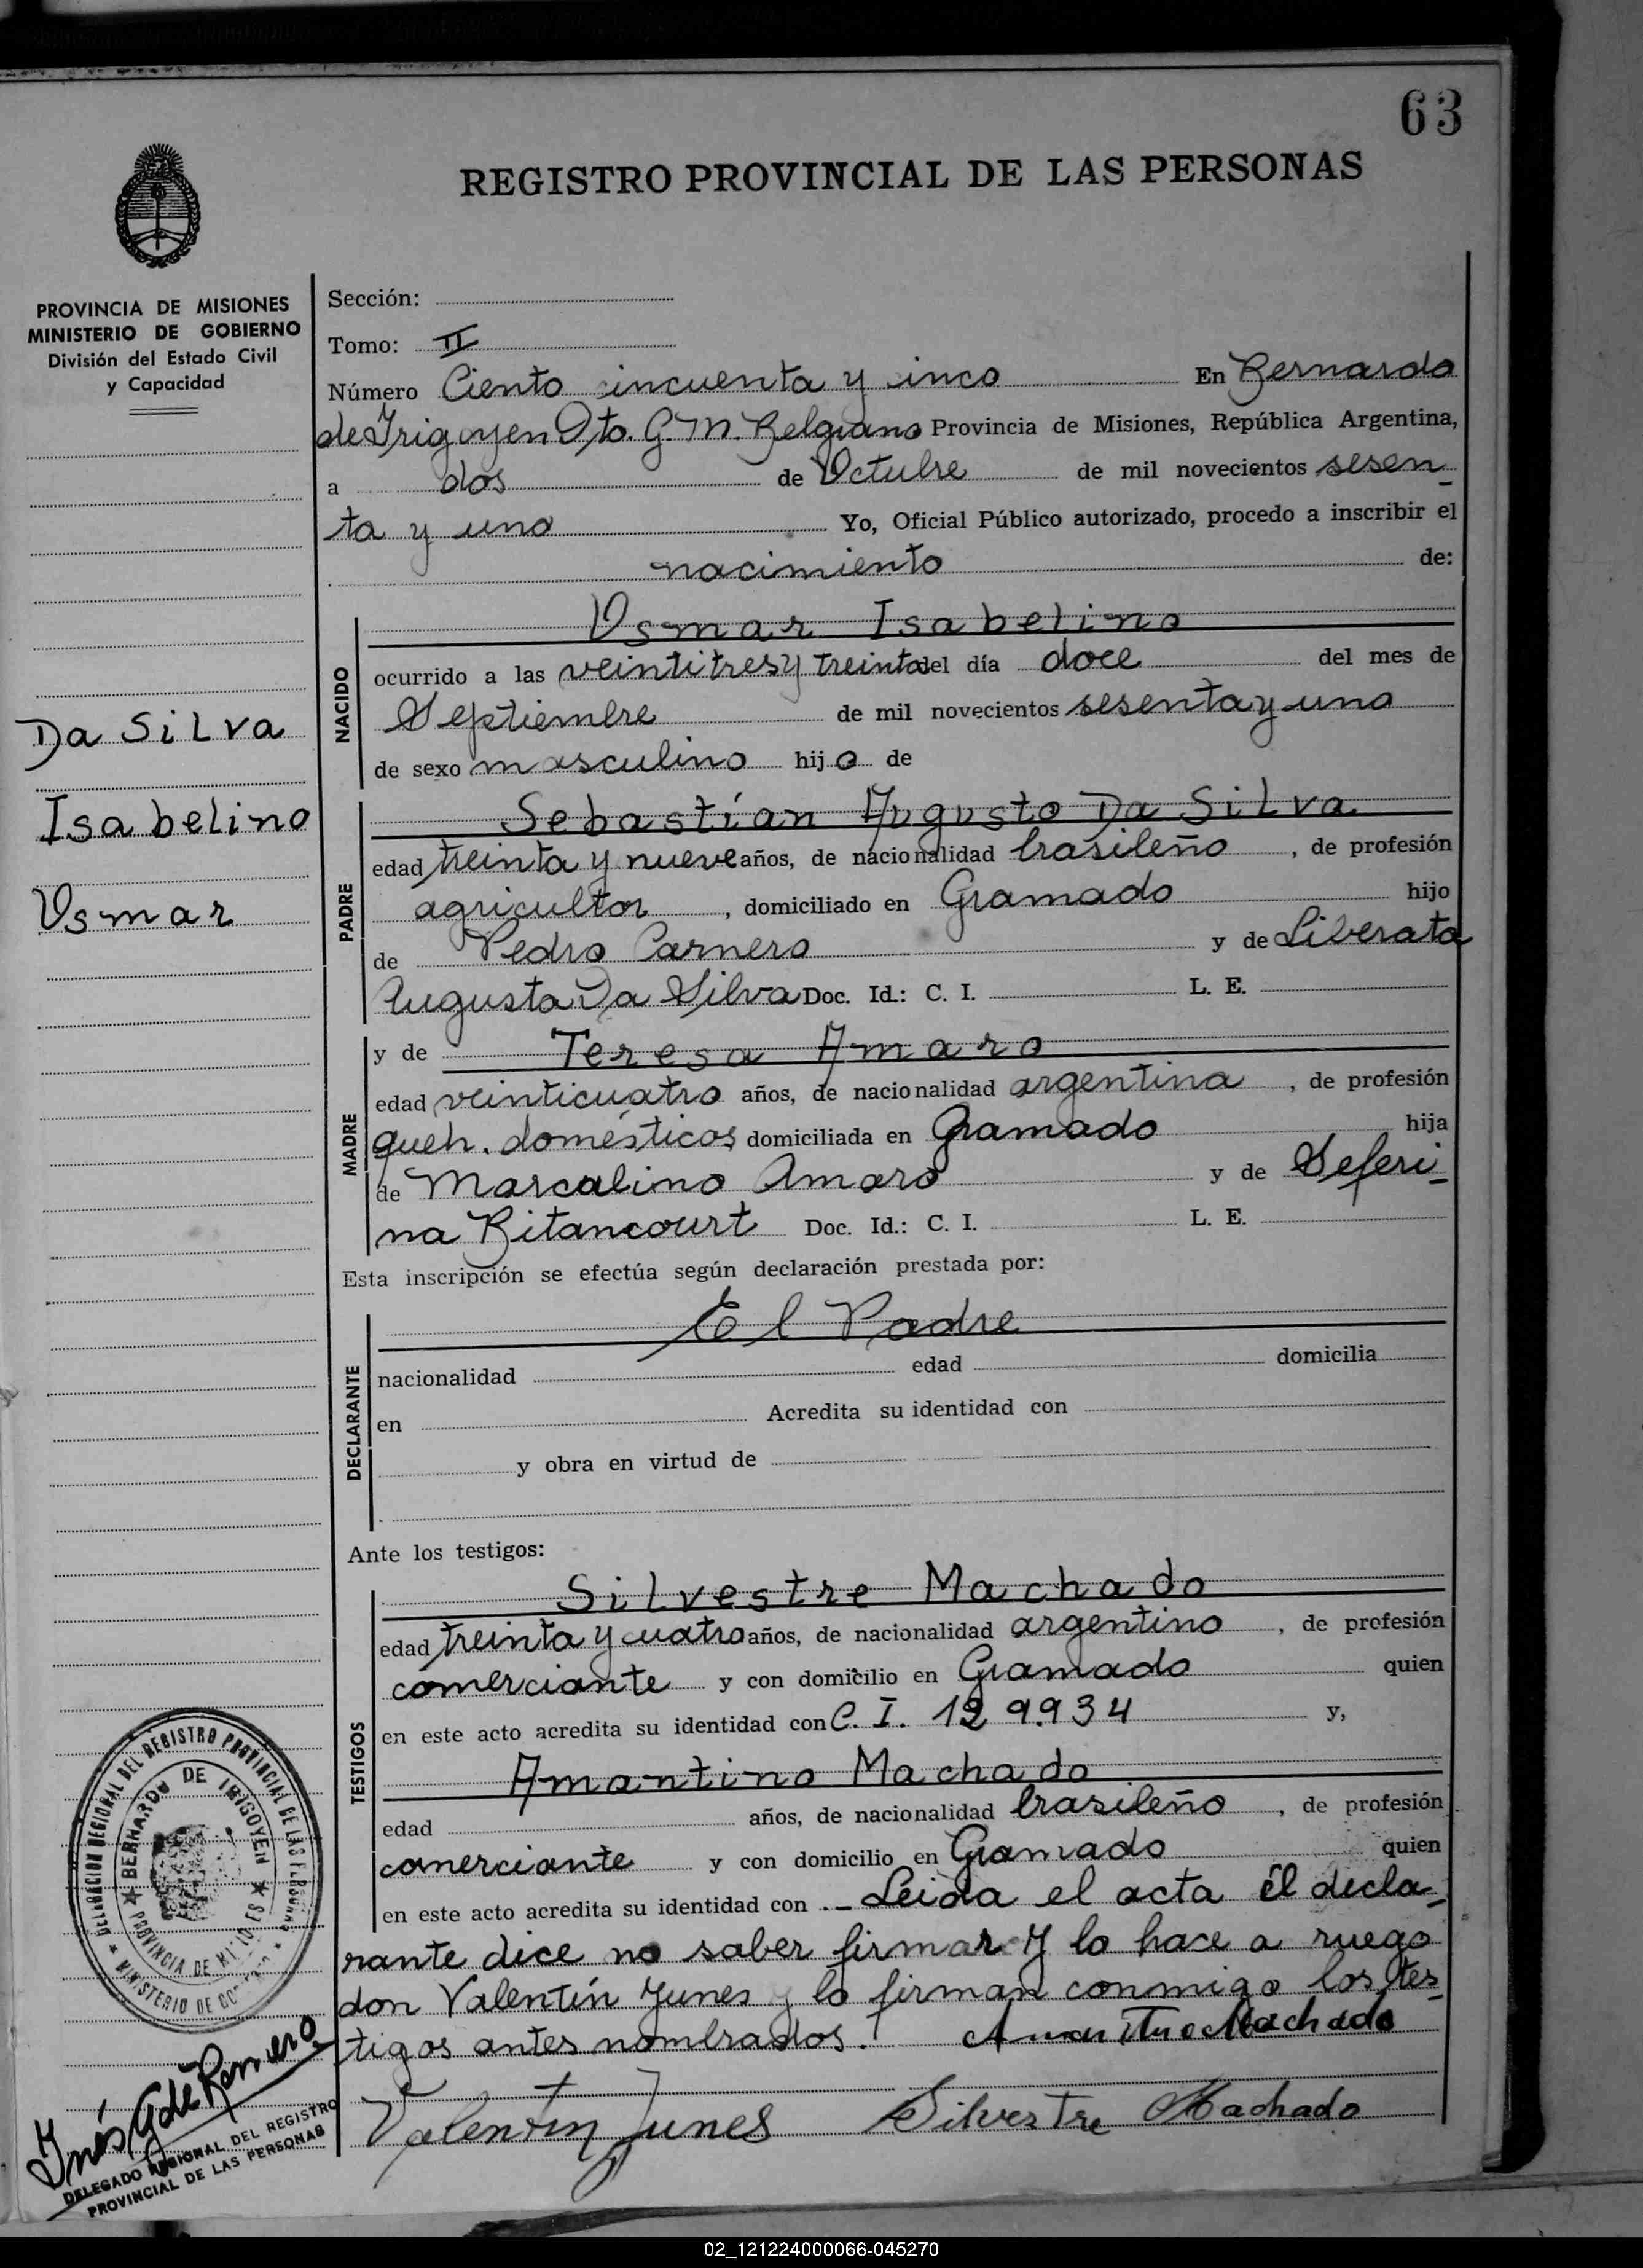 63
REGISTRO PROVINCIAL DE LAS PERSONAS
PROVINCIA DE MISIONES
MINISTERIO DE GOBIERNO
División del Estado Civil
y Capacidad
Da Silva
Isabelino
Osmar
Sección:
Tomo: II
Número Ciento cincuenta y cinco En Bernardo
de Irigoyen Dto. G. M. Belgrano Provincia de Misiones, República Argentina,
a dos de Octubre de mil novecientos sesen_
ta y uno Yo, Oficial Público autorizado, procedo a inscribir el
nacimiento de:
NACIDO
Osmar Isabelino
ocurrido a las veintitres y treinta del día doce del mes de
Septiembre de mil novecientos sesenta y uno
de sexo masculino hijo de
PADRE
Sebastían Augusto Da Silva
edad treinta y nueve años, de nacionalidad brasileño, de profesión
agricultor, domiciliado en Gramado hijo
de Pedro Carnero y de Liberata
Augusta Da Silva Doc. Id.: C. I. L. E.
MADRE
y de Teresa Amaro
edad veinticuatro años, de nacionalidad argentina, de profesión
queh. domésticos domiciliada en Gramado hija
de Marcalino Amaro y de Seferi_
na Bitancourt Doc. Id.: C. I. L. E.
Esta inscripción se efectúa según declaración prestada por:
DECLARANTE
El Padre
nacionalidad edad domicilia
en Acredita su identidad con
y obra en virtud de
Ante los testigos:
TESTIGOS
Silvestre Machado
edad treinta y cuatro años, de nacionalidad argentino, de profesión
comerciante y con domicilio en Gramado quien
en este acto acredita su identidad con C. I. 129.934 y,
Amantino Machado
edad años, de nacionalidad brasileño, de profesión
comerciante y con domicilio en Gramado quien
en este acto acredita su identidad con ._ Leida el acta él decla_
rante dice no saber firmar y lo hace a ruego
don Valentín Junes y lo firman conmigo los tes_
tigos antes nombrados. Amantino Machado
Valentin Junes Silvestre Machado
DELEGACION REGIONAL DEL REGISTRO PROVINCIAL DE LAS PERSONAS
BERNARDO DE IRIGOYEN
PROVINCIA DE MISIONES
MINISTERIO DE GOBIERNO
Inés G de Romero
DELEGADO REGIONAL DEL REGISTRO
PROVINCIAL DE LAS PERSONAS
02_121224000066-045270